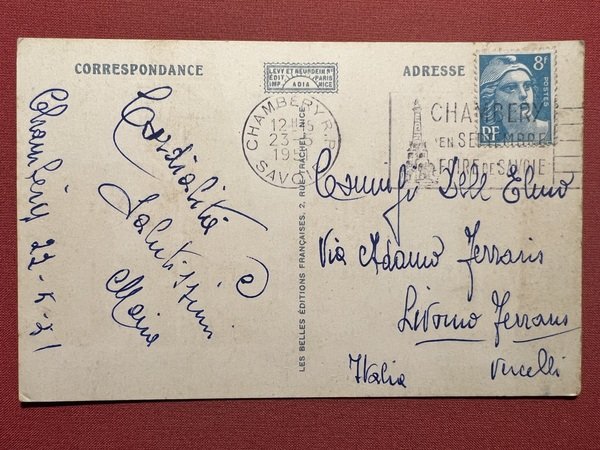 CORRESPONDANCE
LEVY ET NEURDEIN Rs
EDIT PARIS
IMP ADIA NICE
ADRESSE
8F
POSTES
RF
CHAMBERY R.P.
12H
23-5
SAVOIE
CHAMBERY
EN SEPTEMBRE
FOIRE DE SAVOIE
LES BELLES ÉDITIONS FRANÇAISES, 2, RUE TRACHEL, NICE
Chambéry 22-5-51
Cordialità
salutissimi
Famiglia Dell Elmo
Via Adamo Ferraris
Livorno Ferraris
Vercelli
Italia